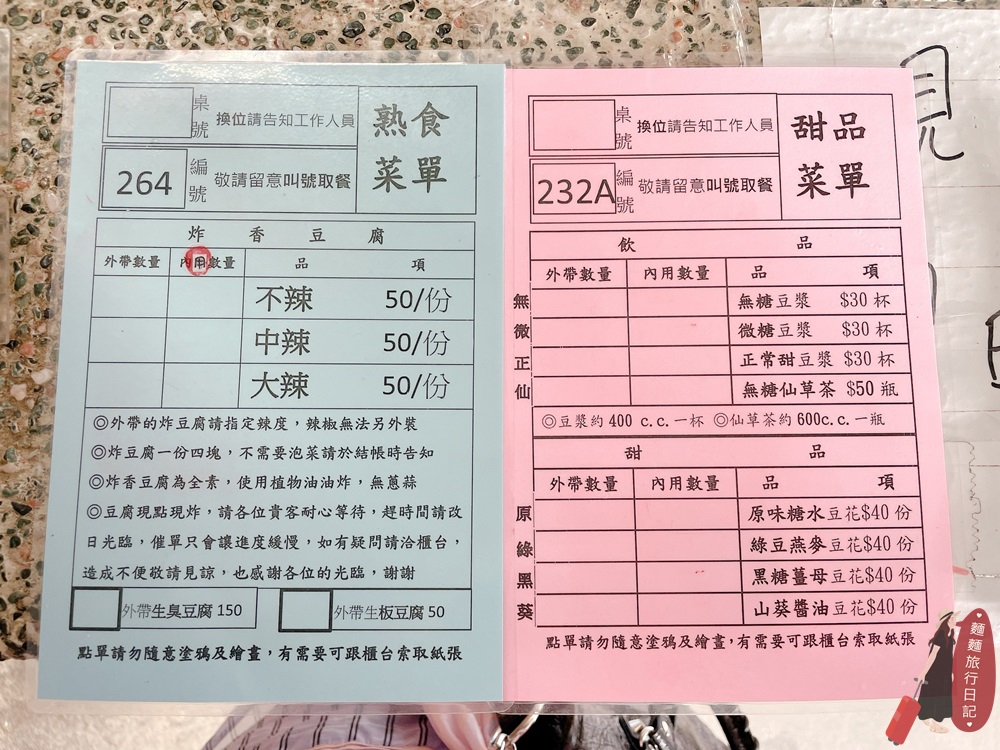 桌號 換位請告知工作人員
熟食菜單
264 編號 敬請留意叫號取餐
炸香豆腐
外帶數量 內用數量 品項
不辣 50/份
中辣 50/份
大辣 50/份
◎外帶的炸豆腐請指定辣度，辣椒無法另外裝
◎炸豆腐一份四塊，不需要泡菜請於結帳時告知
◎炸香豆腐為全素，使用植物油油炸，無蔥蒜
◎豆腐現點現炸，請各位貴客耐心等待，趕時間請改
日光臨，催單只會讓進度緩慢，如有疑問請洽櫃台，
造成不便敬請見諒，也感謝各位的光臨，謝謝
外帶生臭豆腐 150 外帶生板豆腐 50
點單請勿隨意塗鴉及繪畫，有需要可跟櫃台索取紙張
桌號 換位請告知工作人員
甜品菜單
232A 編號 敬請留意叫號取餐
飲品
外帶數量 內用數量 品項
無 無糖豆漿 $30 杯
微 微糖豆漿 $30 杯
正 正常甜豆漿 $30 杯
仙 無糖仙草茶 $50 瓶
◎豆漿約 400 c.c.一杯 ◎仙草茶約 600c.c.一瓶
甜品
外帶數量 內用數量 品項
原 原味糖水豆花$40 份
綠 綠豆燕麥豆花$40 份
黑 黑糖薑母豆花$40 份
葵 山葵醬油豆花$40 份
點單請勿隨意塗鴉及繪畫，有需要可跟櫃台索取紙張
麵麵旅行日記